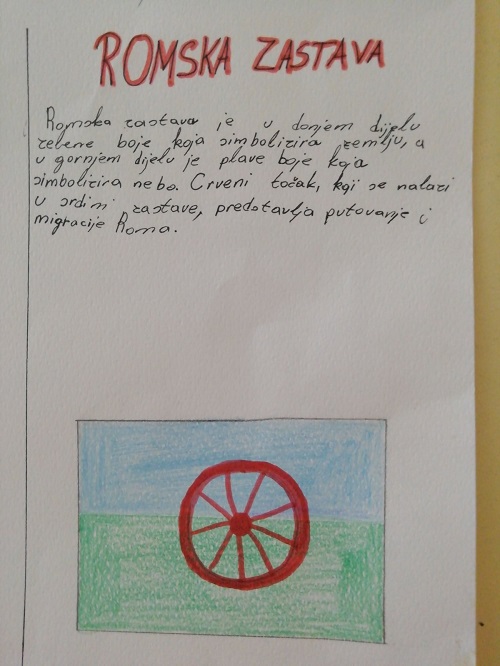 ROMSKA ZASTAVA
Romska zastava je u donjem dijelu
zelene boje koja simbolizira zemlju, a
u gornjem dijelu je plave boje koja
simbolizira nebo. Crveni točak, koji se nalazi
u srdini zastave, predstavlja putovanje i
migracije Roma.